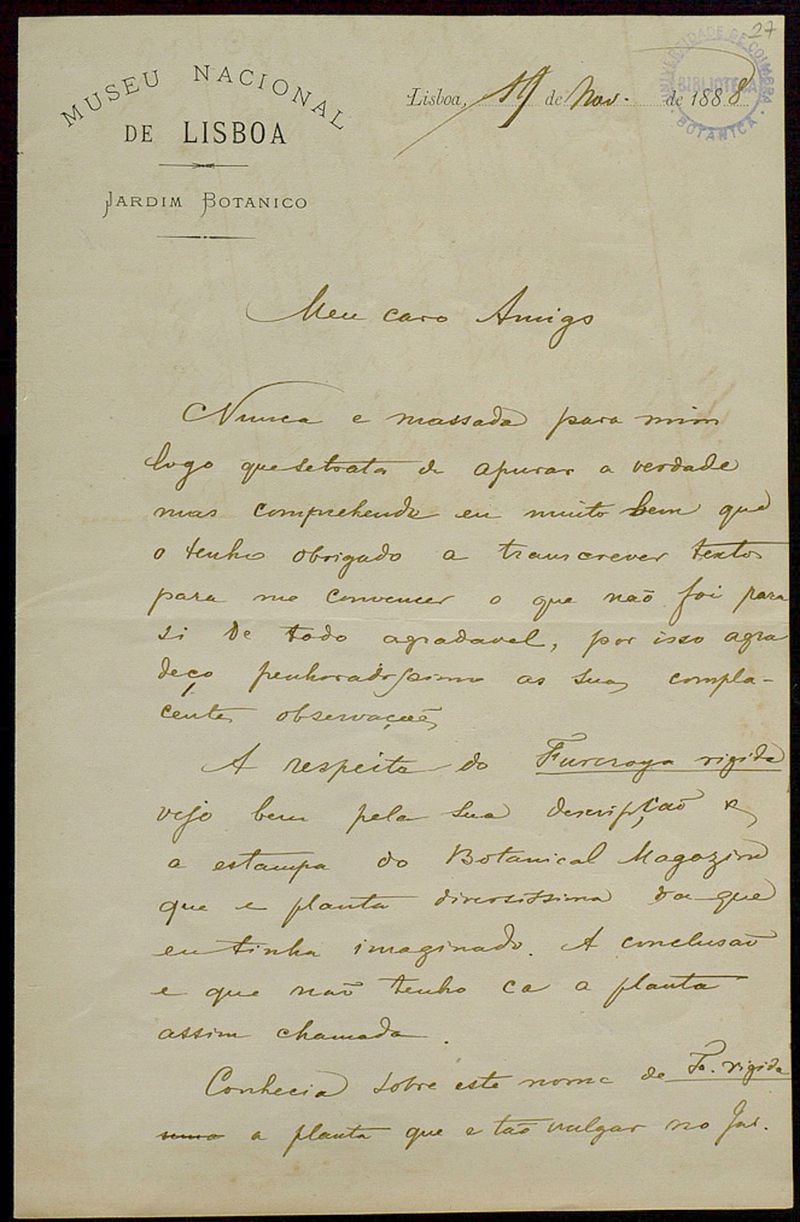 27
UNIVERSIDADE DE COIMBRA
BIBLIOTECA
BOTANICA
MUSEU NACIONAL
DE LISBOA
JARDIM BOTANICO
Lisboa, 19 de Nov. de 1888
Meu caro Amigo
Nunca e massada para mim
logo que se trata de apurar a verdade
mas comprehendo eu muito bem que
o tenho obrigado a transcrever textos
para me convencer o que não foi para
si de todo agradavel, por isso agra
deço penhoradissimo as suas compla-
centes observações
A respeito do Furcroya rigida
vejo bem pela sua descripção e
a estampa do Botanical Magazine
que e planta diversissima da que
eu tinha imaginado. A conclusão
e que não tenho ca a planta
assim chamada.
Conhecia sobre este nome de F. rigida
uma a planta que e tão vulgar no Jar.